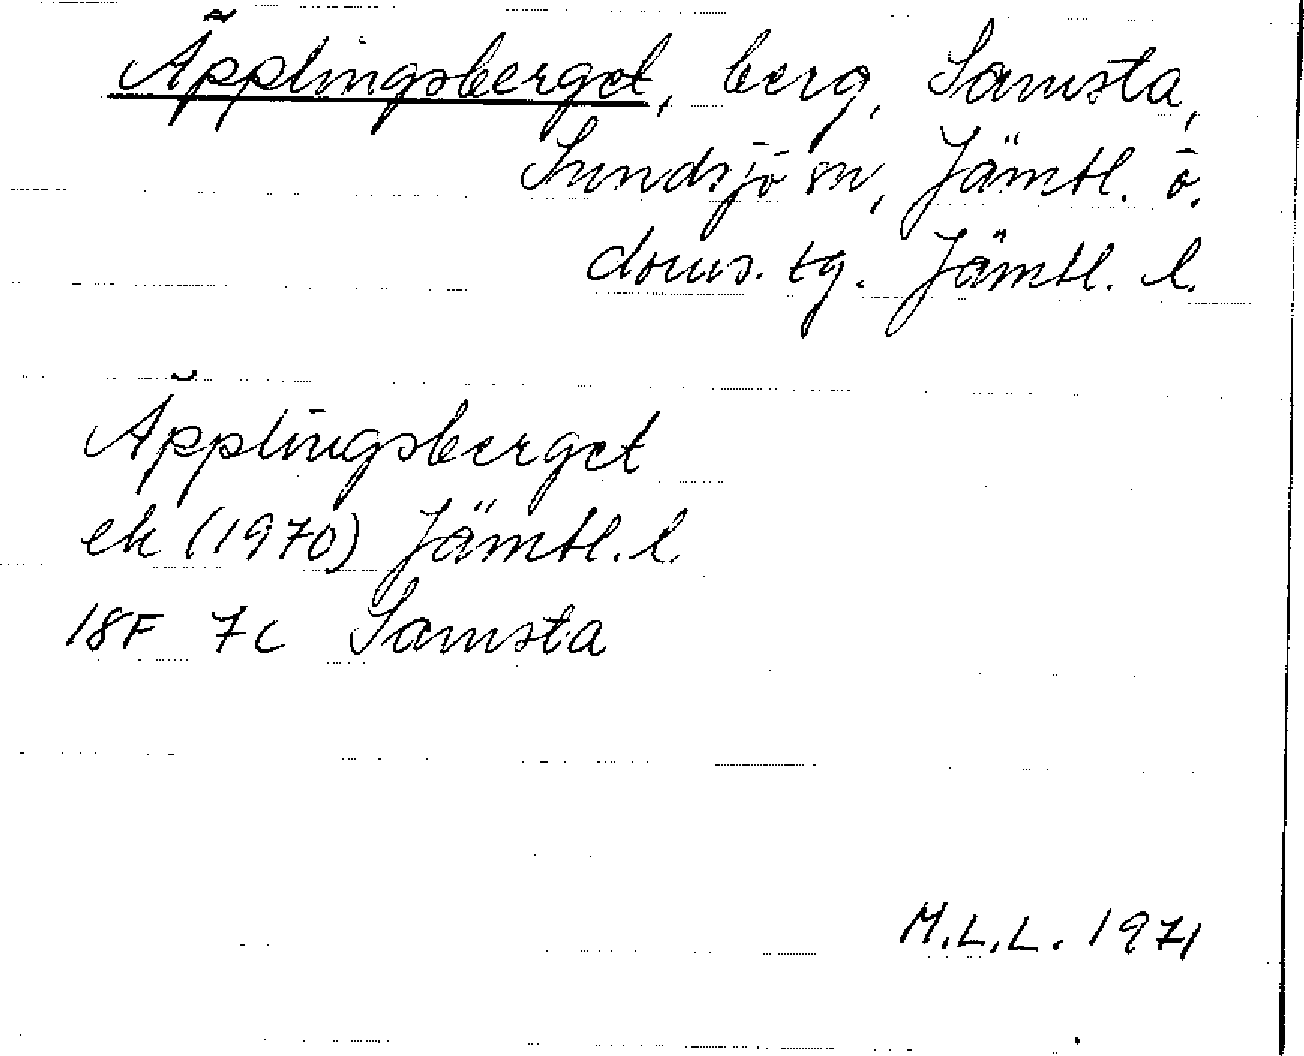 Äpplingsberget, berg, Samsta,
Sundsjö sn, Jämtl. ö.
doms. tg. Jämtl. l.
Äpplingsberget
ek (1970) Jämtl. l.
18F 7c Samsta
M.L.L. 1971